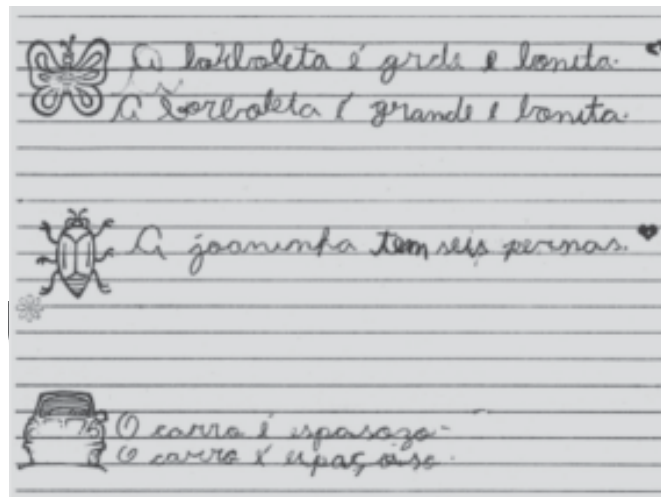 A borboleta é grde e bonita.
A borboleta é grande e bonita.
A joaninha tem seis pernas.
O carro é espasozo
O carro é espaçoiso.